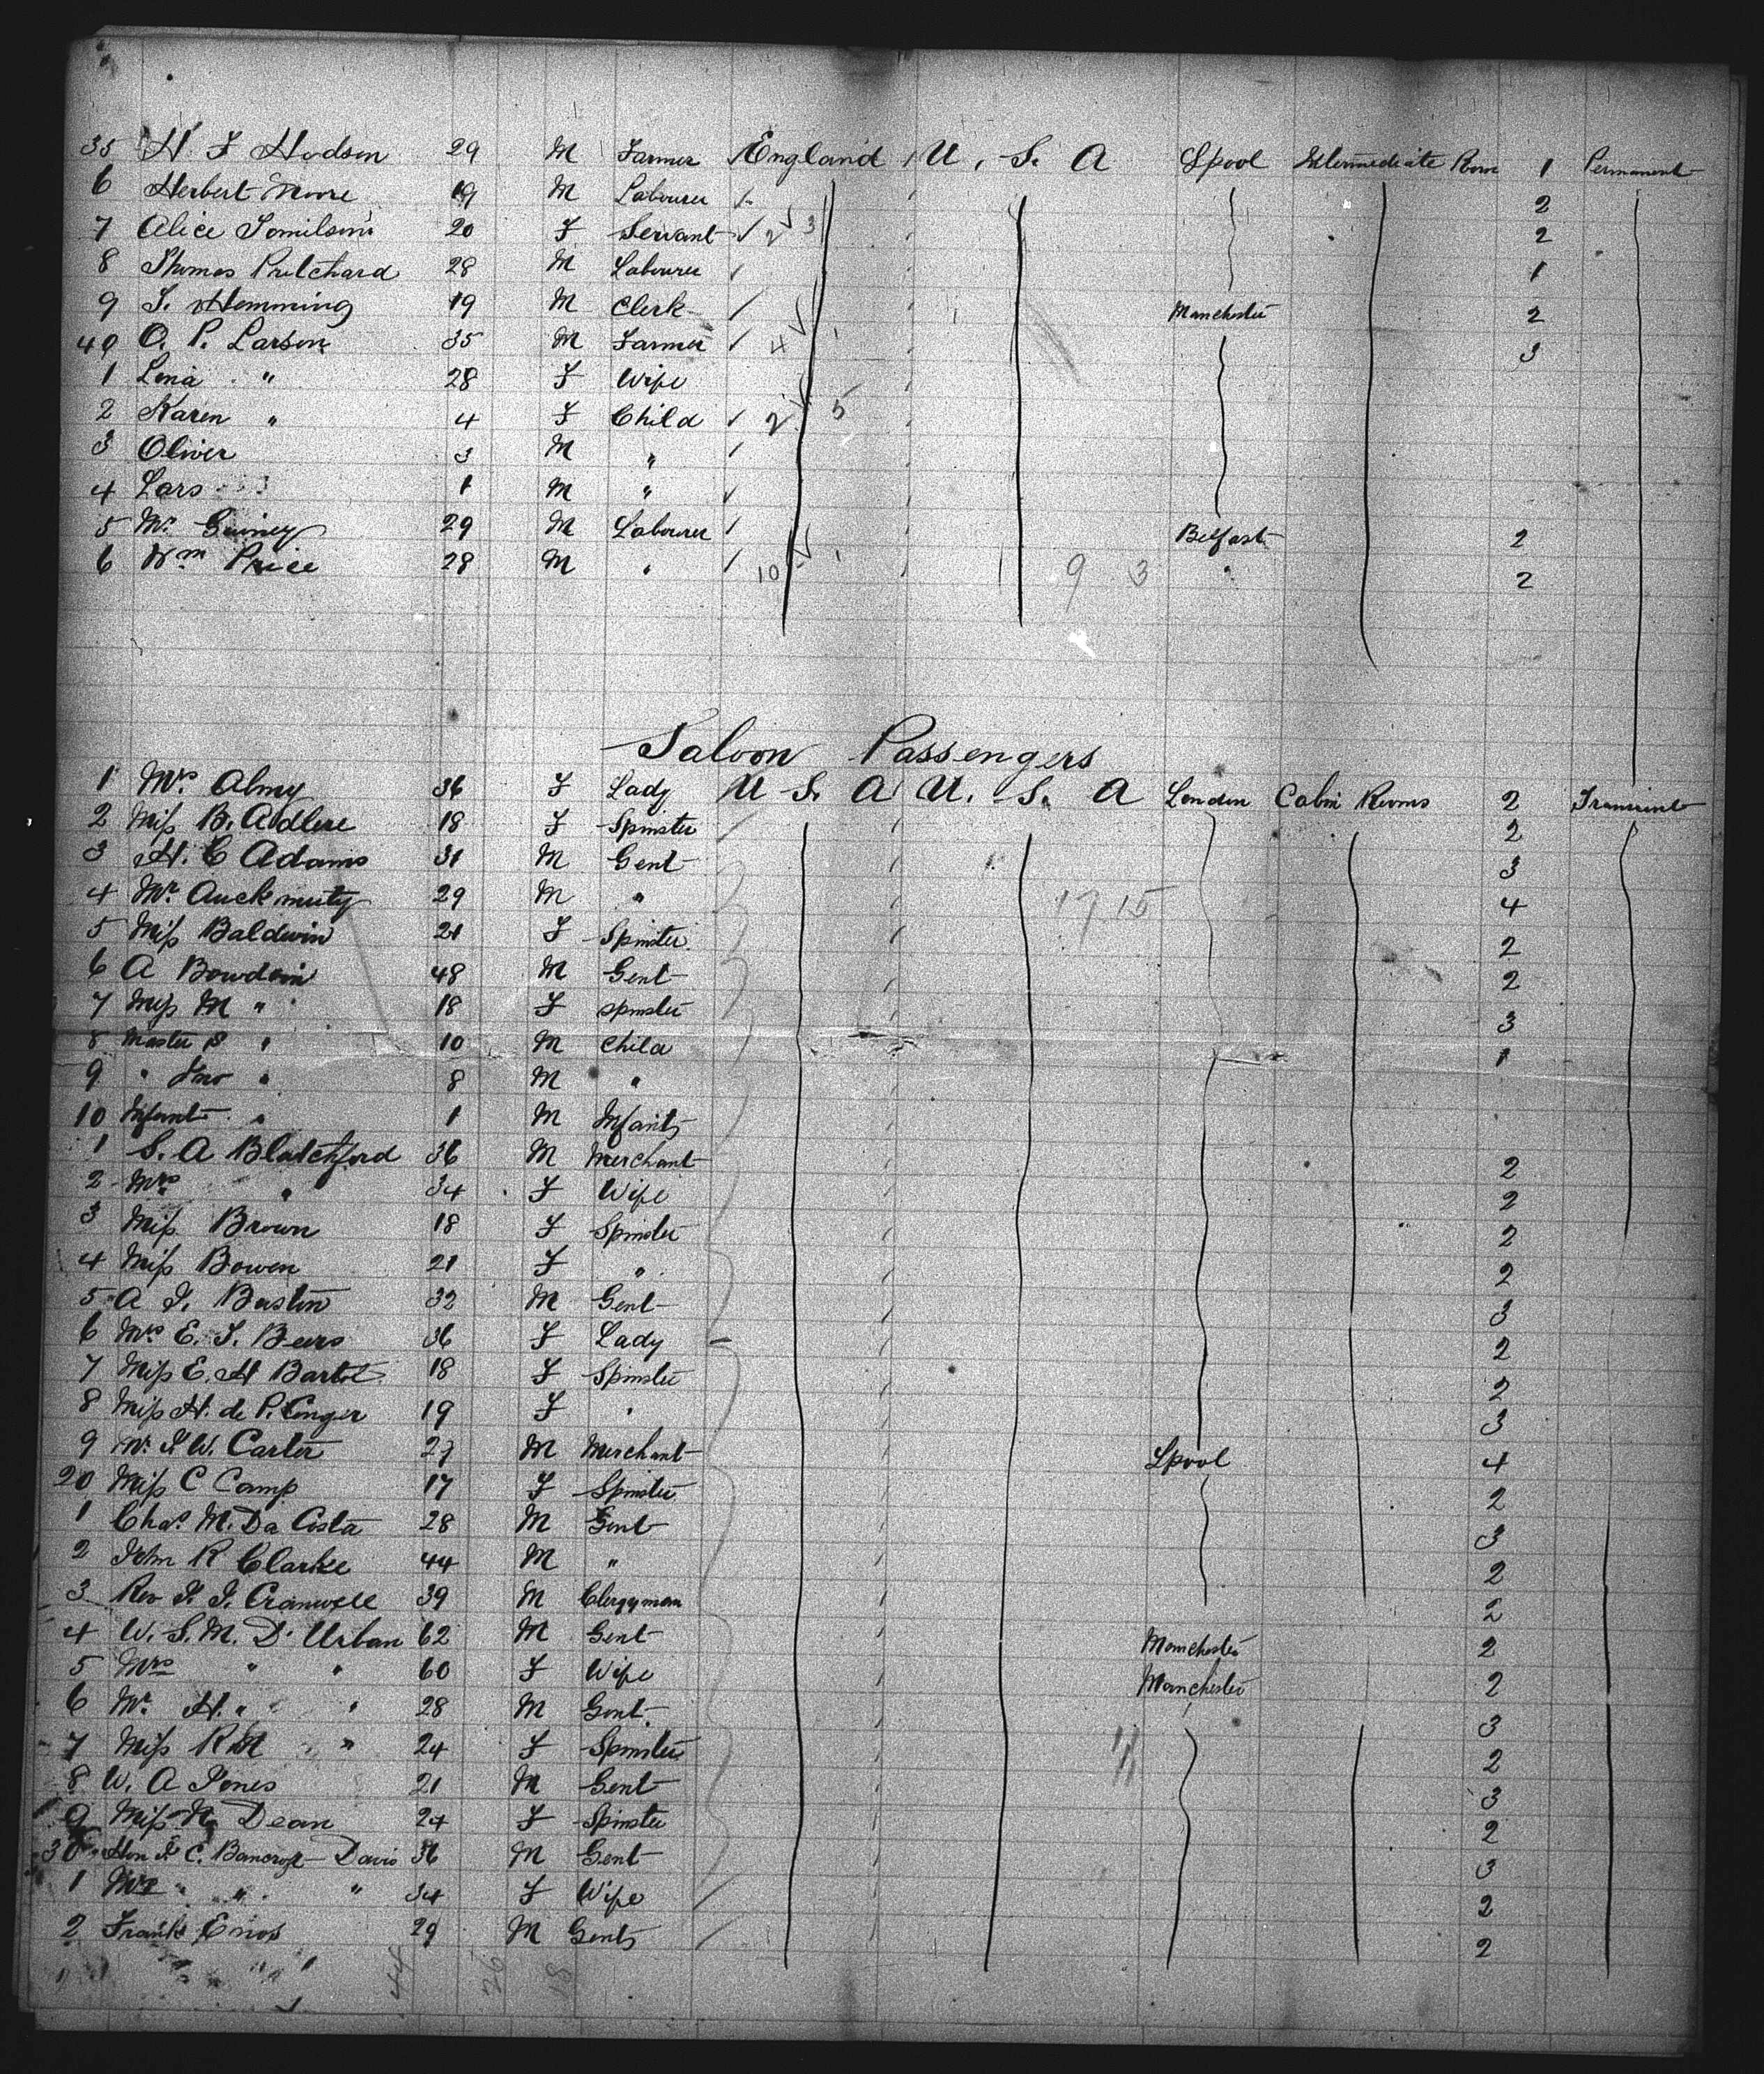 35 H. J Hodson 29 M Farmer England U. S. A Lpool Intermediate Room 1 Permanent
6 Herbert Moore 19 M Labourer 2
7 Alice Tomilson 20 F Servant 2 3 2
8 Thomas Pritchard 28 M Labourer 1
9 T. Hemming 19 M Clerk Manchester 2
40 O. P. Larson 35 M Farmer 4 1 3
1 Lena " 28 F Wife
2 Karen " 4 F Child 2 5
3 Oliver 3 M "
4 Lars 1 M "
5 Mr. Guiney 29 M Labourer Belfast 2
6 Wm Price 28 M " 10 1 1 9 3 " 2
Saloon Passengers
1 Mrs Almy 36 F Lady U. S. A U. S. A London Cabin Rooms 2 Transient
2 Miss B. Adlere 18 F Spinster 2
3 H. C Adams 31 M Gent 3
4 Mr. Auckmuty 29 M " 17 15 4
5 Miss Baldwin 21 F Spinster 2
6 A Bowdoin 48 M Gent 2
7 Miss M " 18 F Spinster 3
8 Master S " 10 M Child 1
9 " Jno " 8 M "
10 Infant " 1 M Infant
1 S. A Blatchford 36 M Merchant 2
2 Mrs " 34 F Wife 2
3 Miss Brown 18 F Spinster 2
4 Miss Bowen 21 F " 2
5 A J. Bastin 32 M Gent 3
6 Mrs E. T. Beers 36 F Lady 2
7 Miss E. H Bartol 18 F Spinster 2
8 Miss H. de P. Conger 19 F " 3
9 W. W. Carter 27 M Merchant Lpool 4
20 Miss C Camp 17 F Spinster 2
1 Chas. M. Da Costa 28 M Gent 3
2 John R Clarke 44 M " 2
3 Rev J. J. Cranwell 39 M Clergyman 2
4 W. S. M. D'Urban 62 M Gent Manchester 2
5 Mrs " " 60 F Wife Manchester 2
6 Mr. H. " " 28 M Gent 3
7 Miss R M " 24 F Spinster 2
8 W. A Jones 21 M Gent 3
9 Miss Dean 24 F Spinster 2
30 Hon J C. Bancroft Davis 36 M Gent 3
1 Mrs " " " 34 F Wife 2
2 Frank Enos 29 M Gent 2
44 26 18